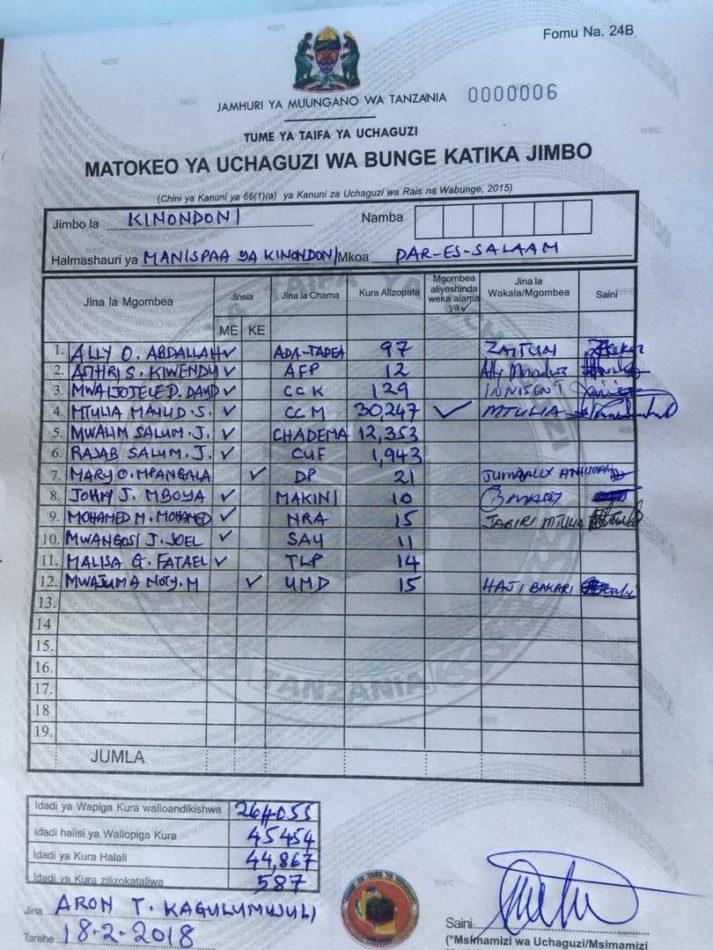 Fomu Na. 24B
JAMHURI YA MUUNGANO WA TANZANIA 0000006
TUME YA TAIFA YA UCHAGUZI
MATOKEO YA UCHAGUZI WA BUNGE KATIKA JIMBO
(Chini ya Kanuni ya 66(1)(a) ya Kanuni za Uchaguzi wa Rais na Wabunge, 2015)
Jimbo la KINONDONI Namba
Halmashauri ya MANISPAA YA KINONDONI Mkoa DAR-ES-SALAAM
Jina la Mgombea Jinsia Jina la Chama Kura Alizopata Mgombea aliyeshinda weka alama ya ✓ Jina la Wakala/Mgombea Saini
ME KE
1. ALLY O. ABDALLAH ✓ ADA-TADEA 97 ZAITUN
2. KIWENDU ✓ AFP 12 Ally
3. MWAIJOJELE D. DAVID ✓ CCK 129
4. MTULIA MAULID S. ✓ CCM 30,247 ✓ MTULIA
5. MWALIM SALUM. J. ✓ CHADEMA 12,353
6. RAJAB SALUM. J. ✓ CUF 1,943
7. MARY O. MPANGALA ✓ DP 21
8. JOHN J. MBOYA ✓ MAKINI 10
9. MOHAMED M. MOHAMED ✓ NRA 15 JABIRI MTULIA
10. MWANGOSI J. JOEL ✓ SAU 11
11. MALISA G. FATAEL ✓ TLP 14
12. MWAJUMA NOTY. M ✓ UMD 15 HAJI BAKARI
13.
14
15.
16.
17.
18
19.
JUMLA
Idadi ya Wapiga Kura walioandikishwa 264055
Idadi halisi ya Waliopiga Kura 45454
Idadi ya Kura Halali 44,867
Idadi ya Kura zilizokataliwa 587
Jina ARON T. KAGULUMJULI
Saini
Tarehe 18.2.2018
(*Msimamizi wa Uchaguzi/Msimamizi